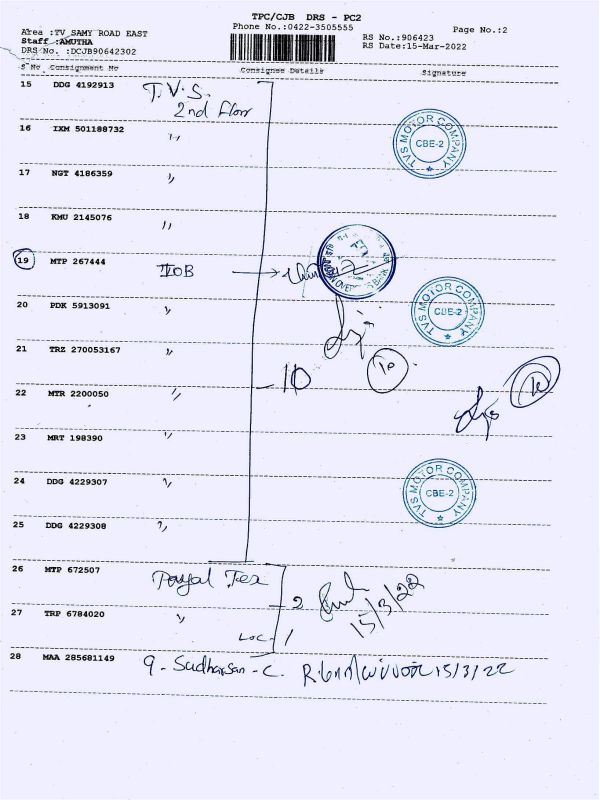 TPC/CJB DRS - PC2
Phone No.:0422-3505555
Page No.:2
Area :TV SAMY ROAD EAST
Staff :AMUTHA
DRS No. :DCJB90642302
RS No.:906423
RS Date:15-Mar-2022
S No Consignment No Consignee Details Signature
15 DDG 4192913 T.V.S.
2nd floor
16 IXM 501188732 "
TVS MOTOR COMPANY
CBE-2
17 NGT 4186359 "
18 KMU 2145076 "
19 MTP 267444 IOB
20 PDK 5913091 "
TVS MOTOR COMPANY
CBE-2
21 TRZ 270053167 "
10
10
10
22 MTR 2200050 "
23 MRT 198390 "
24 DDG 4229307 "
TVS MOTOR COMPANY
CBE-2
25 DDG 4229308 "
26 MTP 672507 Payal Tex
2
15/3/22
27 TRP 6784020 "
LOC- 1
28 MAA 285681149 9- Sudharsan - C. 15/3/22